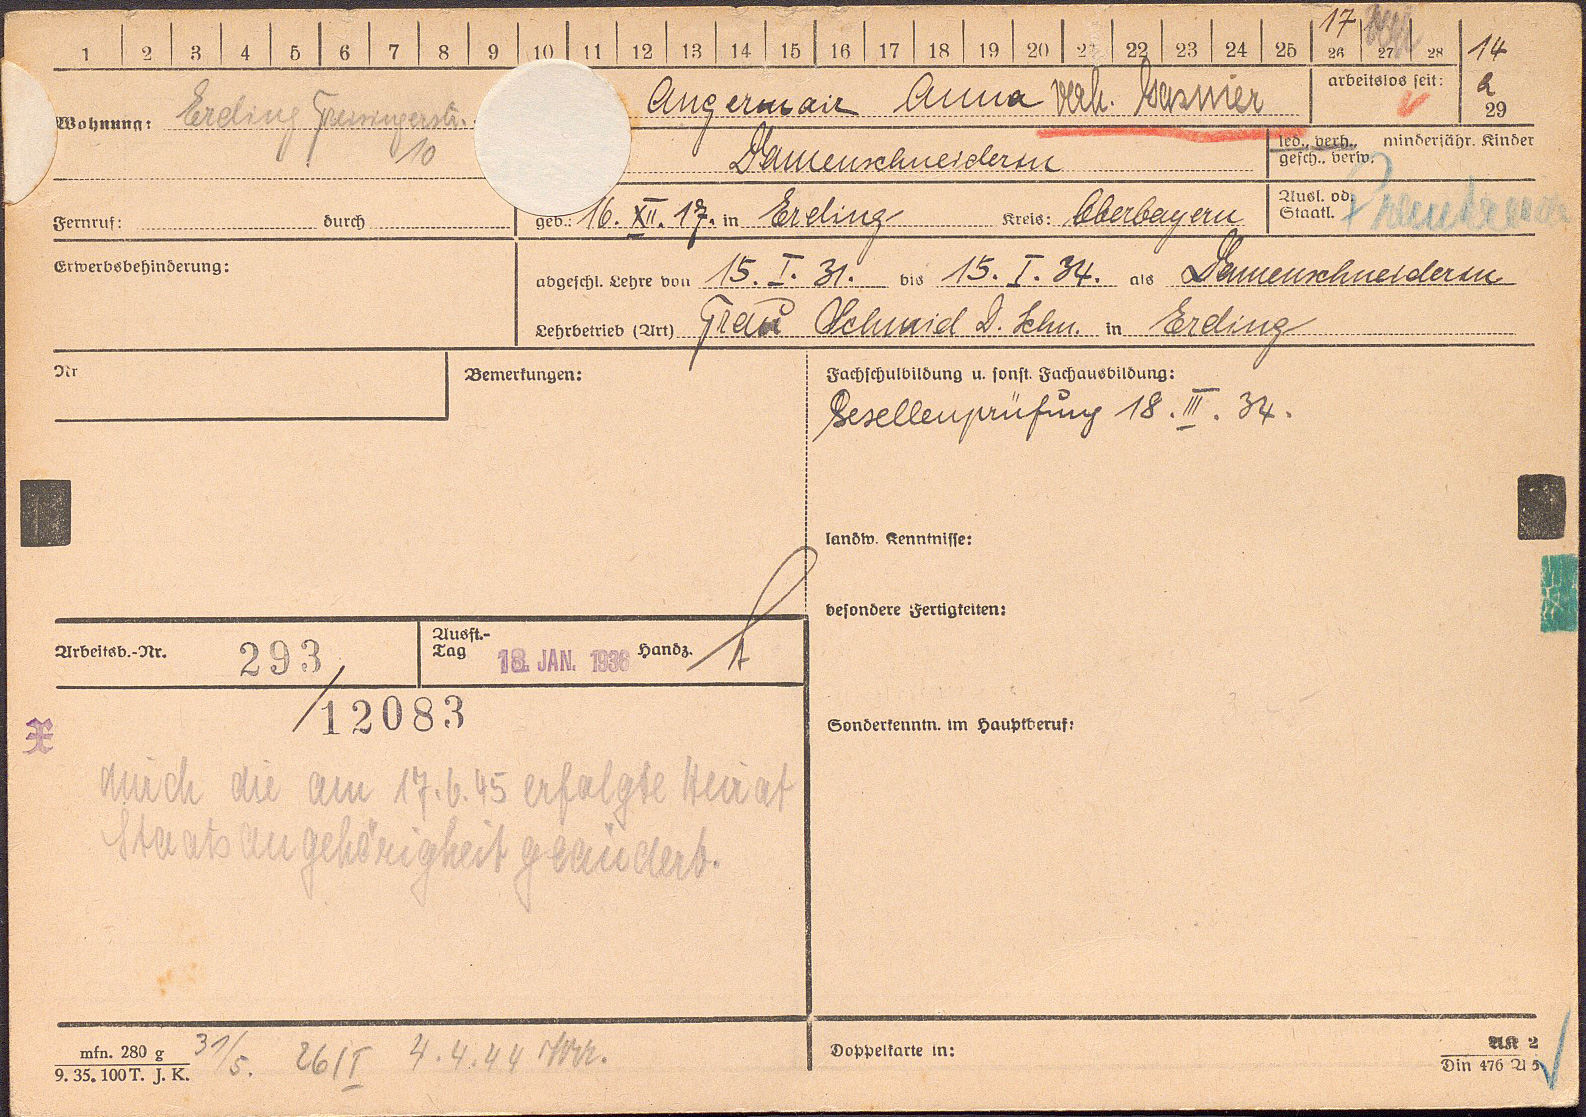 1 2 3 4 5 6 7 8 9 10 11 12 13 14 15 16 17 18 19 20 21 22 23 24 25 26 27 28
17
14
a
29
arbeitslos seit:
Wohnung: Erding Freisingerstr.
10
Angermair Anna verh.
Damenschneiderin
led., verh., minderjähr. Kinder
gesch., verw.
Fernruf: durch
geb.: 16. XII. 17. in Erding Kreis: Oberbayern
Ausl. od.
Staatl.
Erwerbsbehinderung:
abgeschl. Lehre von 15. I. 31. bis 15. I. 34. als Damenschneiderin
Lehrbetrieb (Art) Frau Schmid D. Schn. in Erding
Nr
Bemerkungen:
Fachschulbildung u. sonst. Fachausbildung:
Gesellenprüfung 18. III. 34.
landw. Kenntnisse:
besondere Fertigkeiten:
Arbeitsb.-Nr. 293
Ausst.-
Tag 18. JAN. 1936 Handz.
/12083
X
Sonderkenntn. im Hauptberuf:
durch die am 17.6.45 erfolgte Heirat
Staatsangehörigkeit geändert.
mfn. 280 g
9. 35. 100 T. J. K.
31/5. 26/I 4.4.44
Doppelkarte in:
AK 2
Din 476 A 5